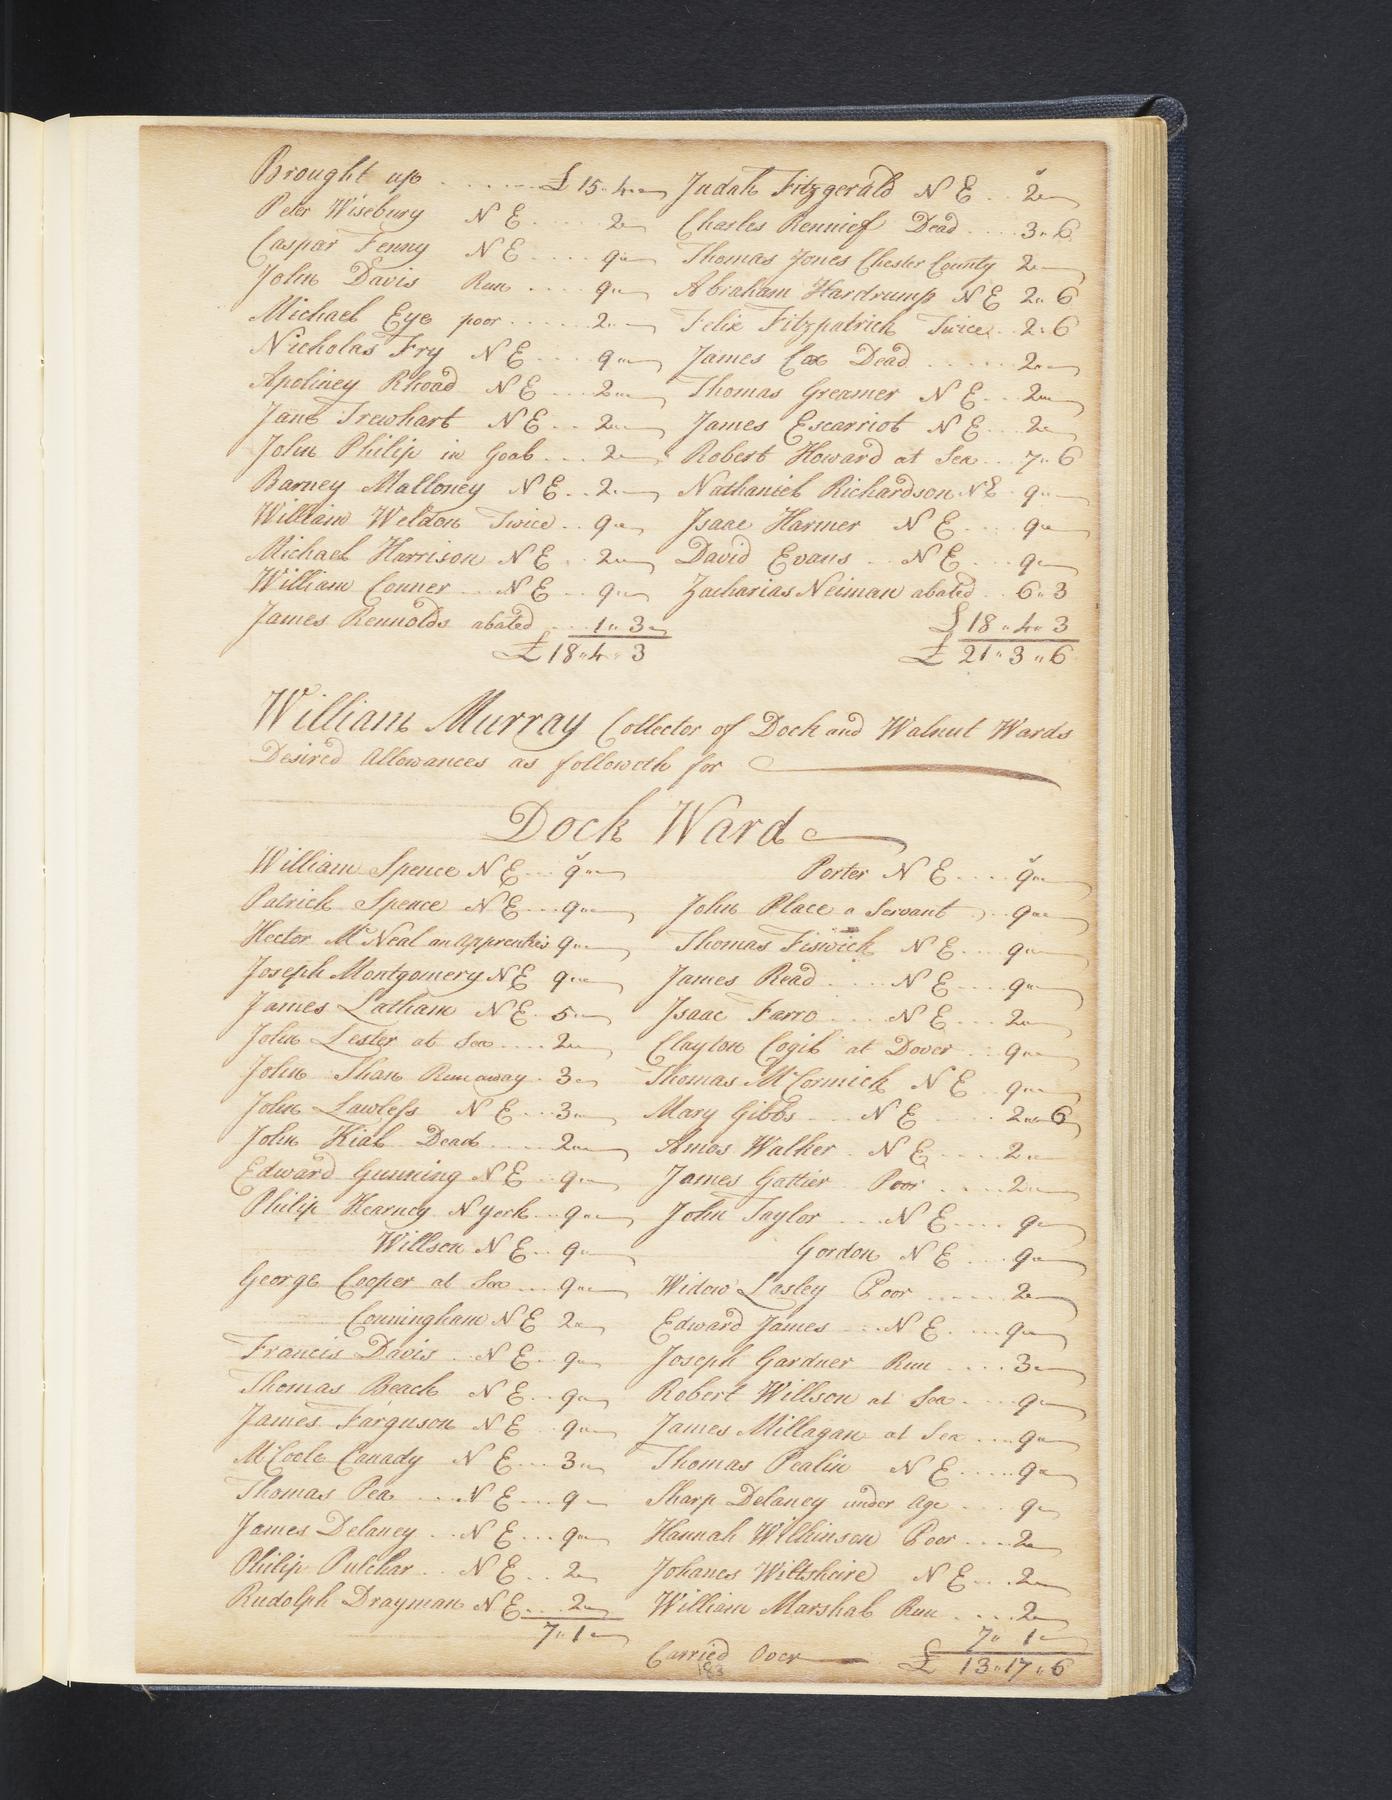 Brought up £ 15 " 4 "
Peter Wisebury N E 2 "
Caspar Fenny N E 9 "
John Davis Run 9 "
Michael Eye poor 2 "
Nicholas Fry N E 9 "
Apoliney Rhoad N E 2 "
Jane Trewhart N E 2 "
John Philip in Goal 2 "
Barney Malloney N E 2 "
William Weldon Twice 9 "
Michael Harrison N E 2 "
William Conner N E 9 "
James Rennolds abated 1 " 3 "
£ 18 " 4 " 3
Judah Fitzgerald N E 2 "
Charles Rennief Dead 3 " 6
Thomas Jones Chester County 2 "
Abraham Hardrump N E 2 " 6
Felix Fitzpatrick Twice 2 " 6
James Cox Dead 2 "
Thomas Greamer N E 2 "
James Escarriot N E 2 "
Robert Howard at Sea 7 " 6
Nathaniel Richardson N E 9 "
Isaac Harmer N E 9 "
David Evans N E 9 "
Zacharias Neiman abated 6 " 3
£ 18 " 4 " 3
£ 21 " 3 " 6
William Murray Collector of Dock and Walnut Wards
Desired Allowances as followeth for
Dock Ward
William Spence N E 9 "
Patrick Spence N E 9 "
Hector McNeal an apprentice 9 "
Joseph Montgomery N E 9 "
James Latham N E 5 "
John Lester at Sea 2 "
John Shan Runaway 3 "
John Lawless N E 3 "
John Kial Dead 2 "
Edward Gunning N E 9 "
Philip Kearney N York 9 "
Willson N E 9 "
George Cooper at Sea 9 "
Conningham N E 2 "
Francis Davis N E 9 "
Thomas Beach N E 9 "
James Farguson N E 9 "
McCoole Canady N E 3 "
Thomas Pea N E 9 "
James Delaney N E 9 "
Philip Pulchar N E 2 "
Rudolph Drayman N E 2 "
7 " 1 "
Porter N E 9 "
John Place a Servant 9 "
Thomas Fiswick N E 9 "
James Read N E 9 "
Isaac Farro N E 2 "
Clayton Cogil at Dover 9 "
Thomas McCormick N E 9 "
Mary Gibbs N E 2 " 6
Amos Walker N E 2 "
James Gattier Poor 2 "
John Taylor N E 9 "
Gordon N E 9 "
Widow Lasley Poor 2 "
Edward James N E 9 "
Joseph Gardner Run 3 "
Robert Willson at Sea 9 "
James Millagan at Sea 9 "
Thomas Pealin N E 9 "
Sharp Delaney under Age 9 "
Hannah Wilkinson Poor 2 "
Johanes Wiltshire N E 2 "
William Marshal Run 2 "
7 " 1 "
Carried Over £ 13 " 17 " 6
183